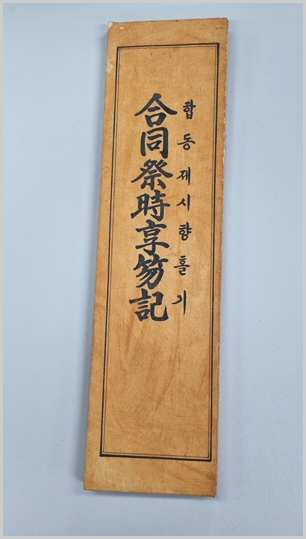 합동제시향홀기
合同祭時享笏記